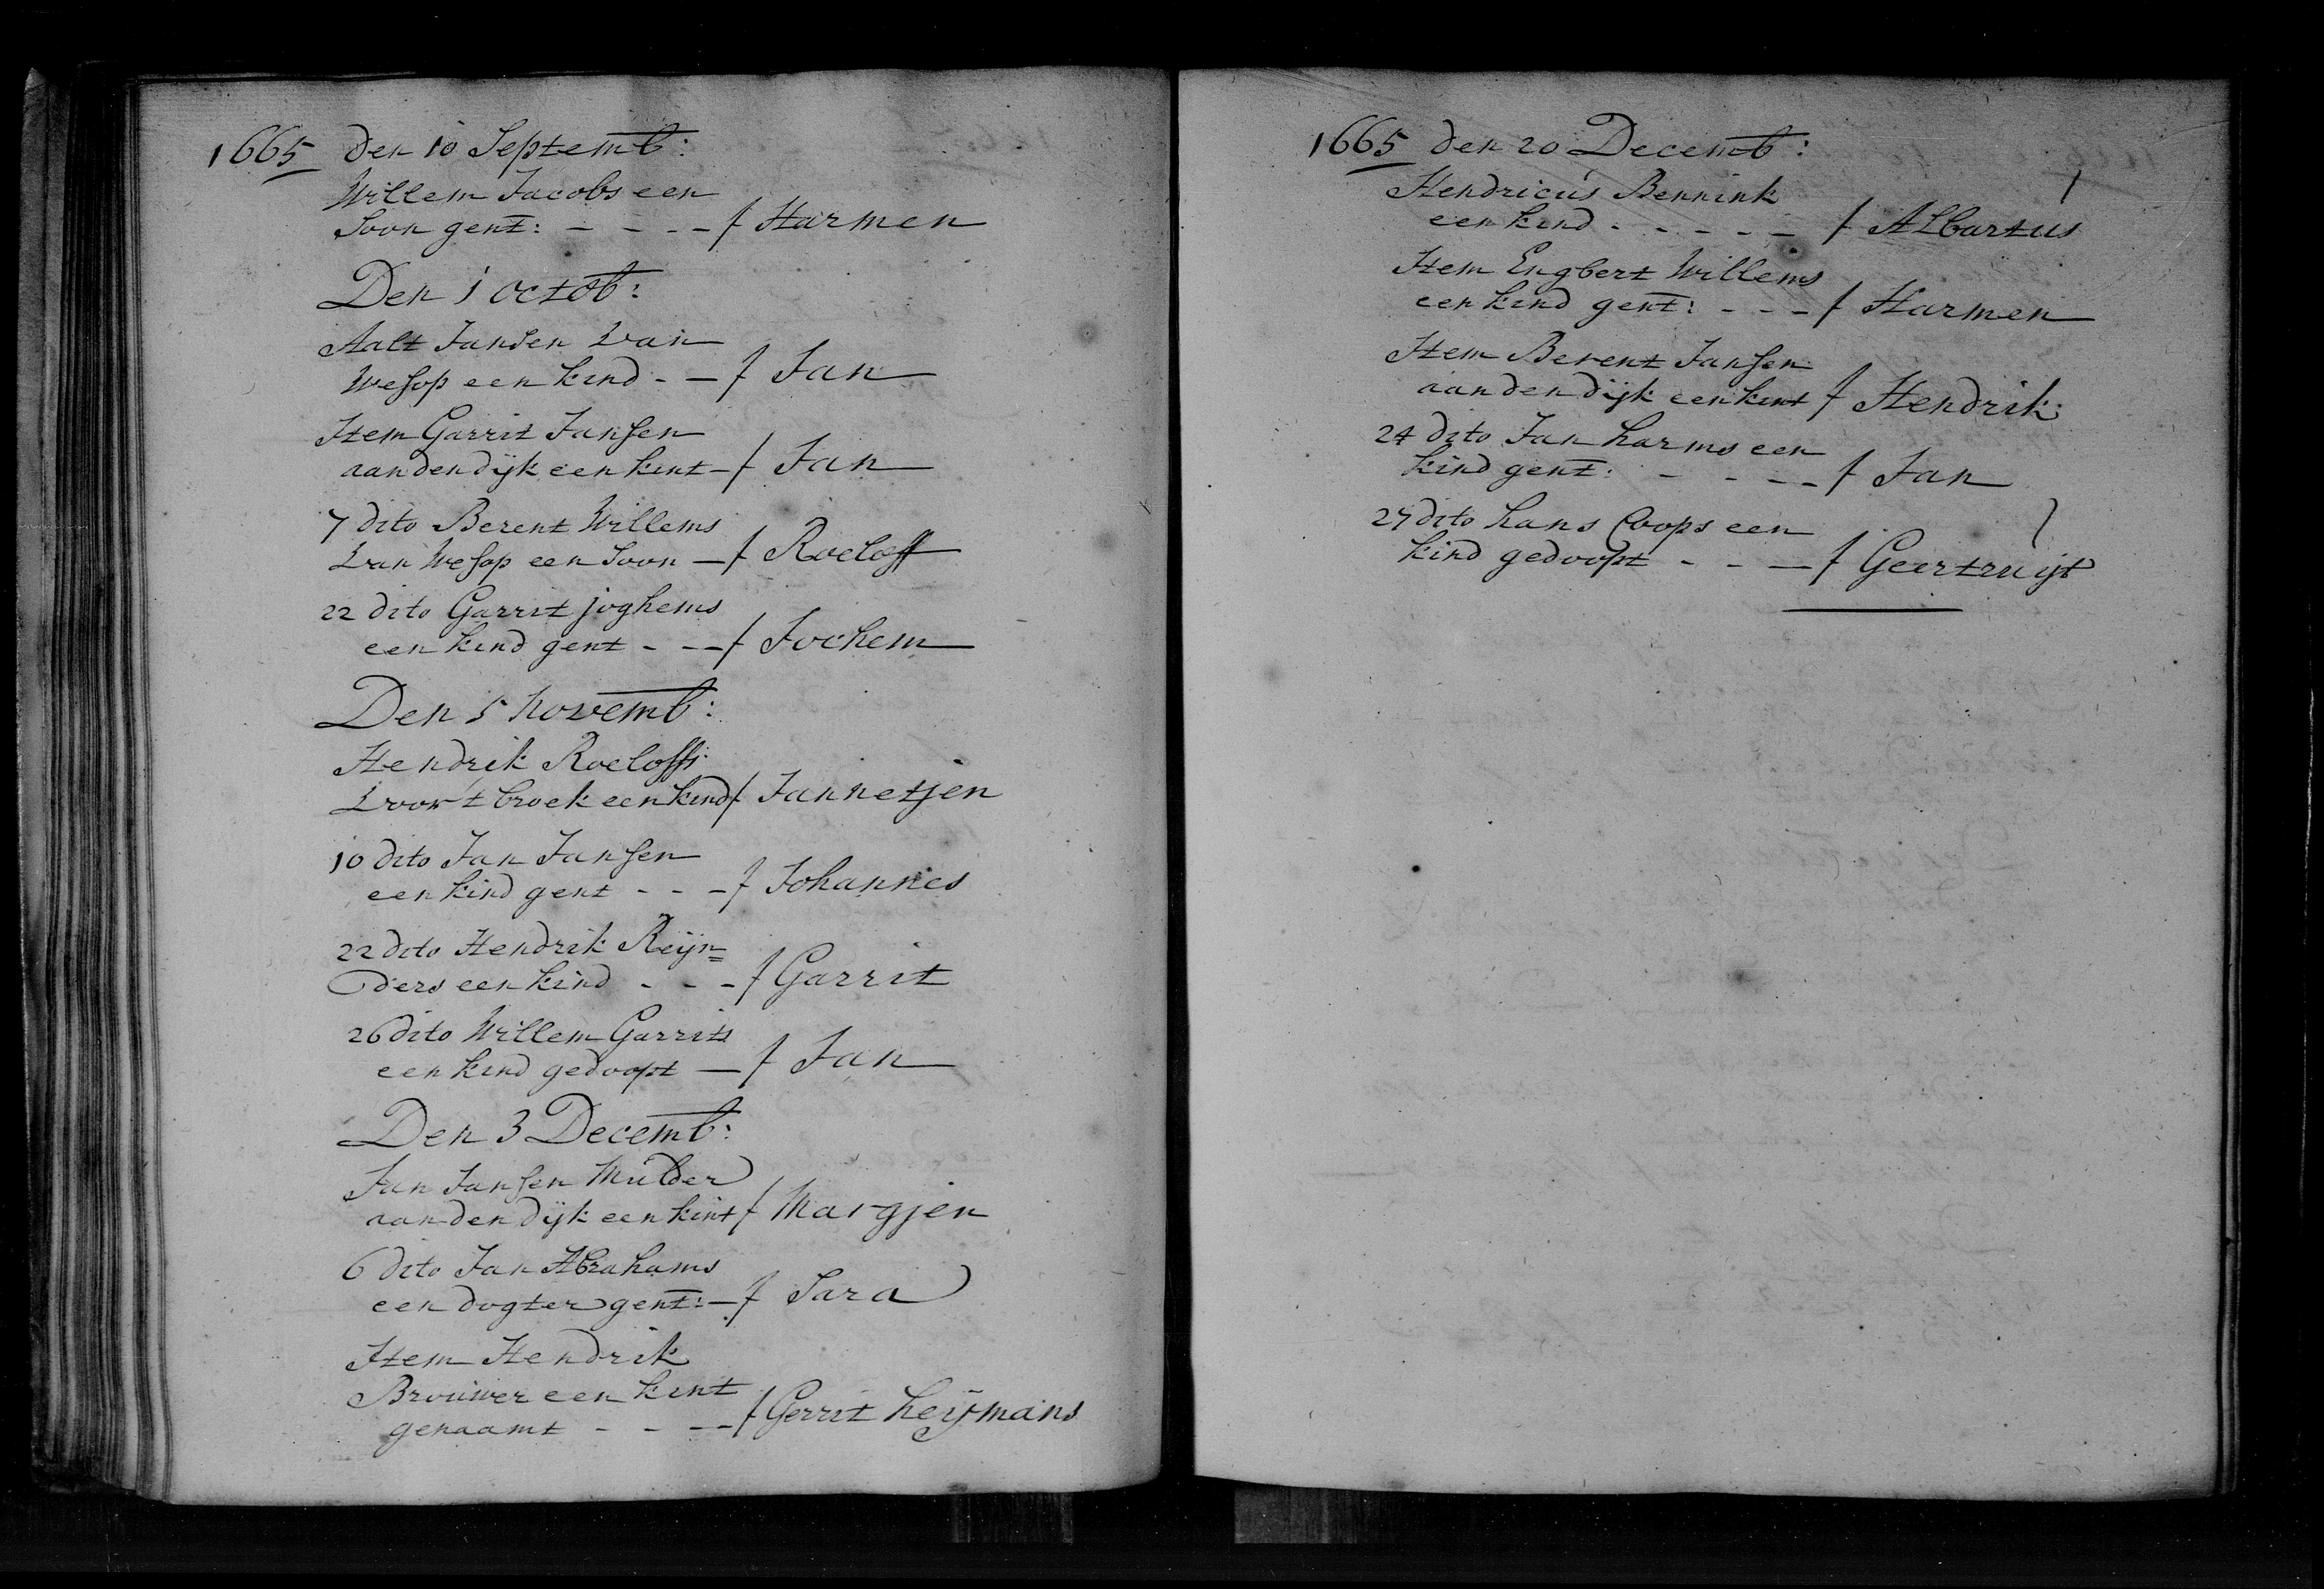 1665 den 10 Septemb:
Willem Jacobs een
Soon gent: - - - - f Harmen
Den 1 octob:
Aalt Jansen van
Wesop een kind - - f Jan
Item Garrit Jansen
aan den dijk een kint - f Jan
7 dito Berent Willems
van Wesop een Soon - f Roeloff
22 dito Garrit joghems
een kind gent - - - f Jochem
Den 5 novemb:
Hendrik Roeloffs
voor 't broek een kind f Jannetjen
10 dito Jan Jansen
een kind gent - - - f Johannes
22 dito Hendrik Reijn=
ders een kind - - - f Garrit
26 dito Willem Garrits
een kind gedoopt - f Jan
Den 3 Decemb:
Jan Jansen Mulder
aan den dijk een kint f Margjen
6 dito Jan Abrahams
een dogter gent: - f Sara
Item Hendrik
Brouwer een kint
genaamt - - - - f Gerrit heijmans
1665 den 20 Decemb:
Hendricus Bennink
een kind - - - - - f Albartus
Item Engbert Willems
een kind gent: - - - f Harmen
Item Berent Jansen
aan den dijk een kint f Hendrik
24 dito Jan harms een
kind gent: - - - - f Jan
27 dito hans Coops een
kind gedoopt - - - f Geertruijt